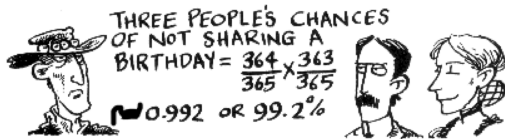 THREE PEOPLE'S CHANCES
OF NOT SHARING A
BIRTHDAY = 364/365 × 363/365
~ 0.992 OR 99.2%